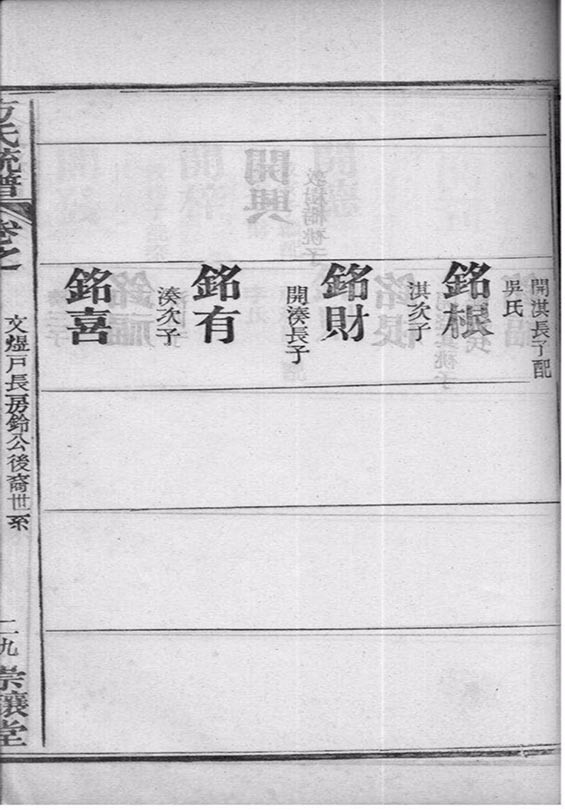 開興
開淇長子配
吳氏
銘根
淇次子
銘財
開湊長子
銘有
湊次子
銘喜
方氏統譜
卷之一
文煜戶長房鈴公後裔世系
二九
崇讓堂